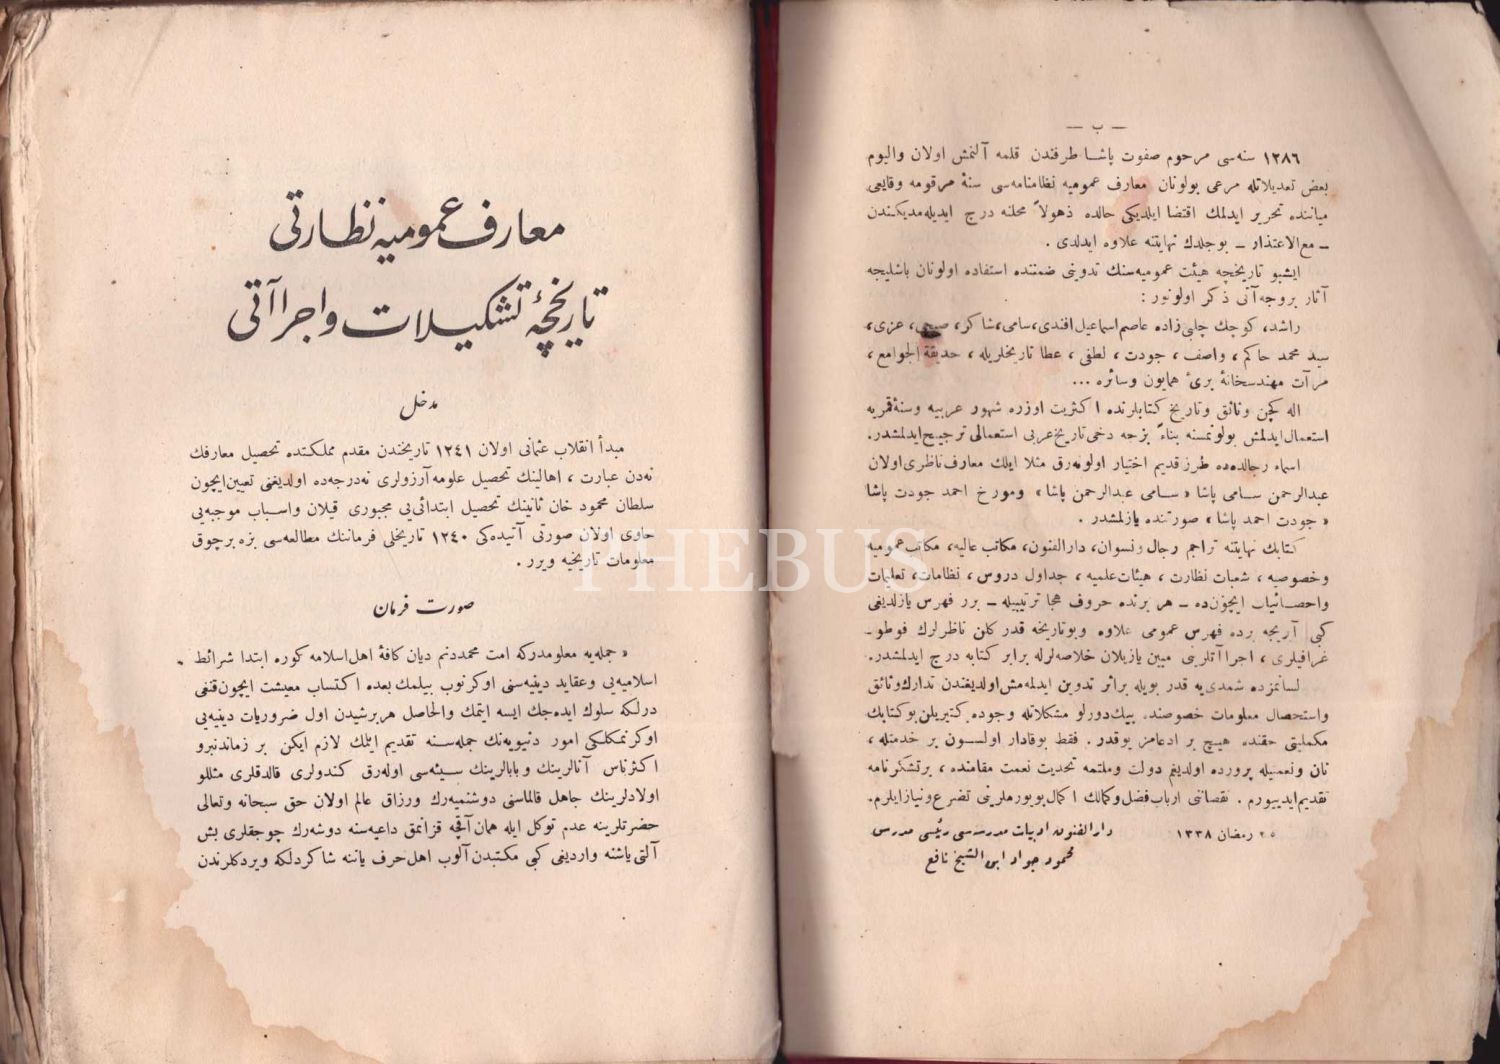 — ب —
١٢٨٦ سنه‌سی مرحوم صفوت پاشا طرفندن قلمه آلنمش اولان والیوم
بعض تعدیلاتله مرعی بولونان معارف عمومیه نظامنامه‌سی سنهٔ مرقومه وقایعی
میاننده تحریر ایدلمك اقتضا ایلدیکی حالده ذهولاً محلنه درج ایدیله‌مدیکندن
ـ مع‌الاعتذار ـ بوجلدك نهایتنه علاوه ایدلدی .
ایشبو تاریخچه هیئت عمومیه‌سنك تدوینی ضمننده استفاده اولونان باشلیجه
آثار بروجه آتی ذکر اولونور :
راشد، کوچك چلبی زاده عاصم اسماعیل افندی، سامی، شاکر، صبحی، عزی،
سید محمد حاکم، واصف ، جودت ، لطفی ، عطا تاریخلریله ، حدیقة الجوامع ،
مرآت مهندسخانهٔ بریٔ همایون وسائره ...
اله کچن وثائق وتاریخ کتابلرنده اکثریت اوزره شهور عربیه وسنهٔ قمریه
استعمال ایدلمش بولونمسنه بناءً بزجه دخی تاریخ عربی استعمالی ترجیح ایدلمشدر.
اسماء رجالده‌ده طرز قدیم اختیار اولونه‌رق مثلا ایلك معارف ناظری اولان
عبدالرحمن سامی پاشا « سامی عبدالرحمن پاشا » ومورخ احمد جودت پاشا
« جودت احمد پاشا » صورتنده یازلمشدر .
کتابك نهایتنه تراجم رجال ونسوان، دارالفنون، مکاتب عالیه، مکاتب عمومیه
وخصوصیه ، شعبات نظارت ، هیئات علمیه ، جداول دروس ، نظامات، تعلیمات
واحصائیات ایچون‌ده ـ هر برنده حروف هجا ترتیبیله ـ برر فهرس یازلدیغی
کبی آریجه برده فهرس عمومی علاوه وبو تاریخه قدر کلن ناظرلرك فوطو-
غرافیلری ، اجراآتلرینی مبین یازیلان خلاصه‌لرله برابر کتابه درج ایدلمشدر.
لسانمزده شمدی‌یه قدر بویله بر اثر تدوین ایدلمه‌مش اولدیغندن تدارك وثائق
واستحصال معلومات خصوصنده بیك دورلو مشکلاتله وجوده کتیریلن بو کتابك
مکملیتی حقنده هیچ بر ادعامز یوقدر . فقط بوقادار اولسون بر خدمتله ،
نان ونعمیله پرورده اولدیغم دولت وملتمه تحدیث نعمت مقامنده ، بر تشکرنامه
تقدیم ایدییورم . نقصاننی ارباب فضل وکمالك اکمال بویورملرینی تضرع ونیاز ایلرم.
٢٥ رمضان ١٣٣٨
دارالفنون ادبیات مدرسه‌سی رئیسی مدرس
محمود جواد ابن الشیخ نافع
معارف عمومیه نظارتی
تاریخچهٔ تشکیلات واجراآتی
مدخل
مبدأ انقلاب عثمانی اولان ١٢٤١ تاریخندن مقدم مملکتده تحصیل معارفك
نه‌دن عبارت ، اهالینك تحصیل علومه آرزولری نه‌درجه‌ده اولدیغنی تعیین ایچون
سلطان محمود خان ثانینك تحصیل ابتدائی‌یی مجبوری قیلان واسباب موجبه‌یی
حاوی اولان صورتی آتیده‌کی ١٢٤٠ تاریخلی فرماننك مطالعه‌سی بزه برچوق
معلومات تاریخیه ویرر .
صورت فرمان
« جمله‌یه معلومدرکه امت محمددنم دیان کافهٔ اهل اسلامه کوره ابتدا شرائط
اسلامیه‌یی وعقاید دینیه‌سنی اوکرنوب بیلمك بعده اکتساب معیشت ایچون قنغی
درلکه سلوك ایده‌جك ایسه ایتمك والحاصل هربرشیدن اول ضروریات دینیه‌یی
اوکرنمکلکی امور دنیویه‌نك جمله‌سنه تقدیم ایلمك لازم ایکن بر زماندنبرو
اکثر ناس آنالرینك وبابالرینك سیئه‌سی اوله‌رق کندولری قالدقلری مثللو
اولادلرینك جاهل قالماسنی دوشنمیه‌رك ورزاق عالم اولان حق سبحانه وتعالی
حضرتلرینه عدم توکل ایله همان آقچه قزانمق داعیه‌سنه دوشه‌رك چوجقلری بش
آلتی یاشنه واردیغی کبی مکتبدن آلوب اهل حرف یاننه شاکردلکه ویردکلرندن
PHEBUS